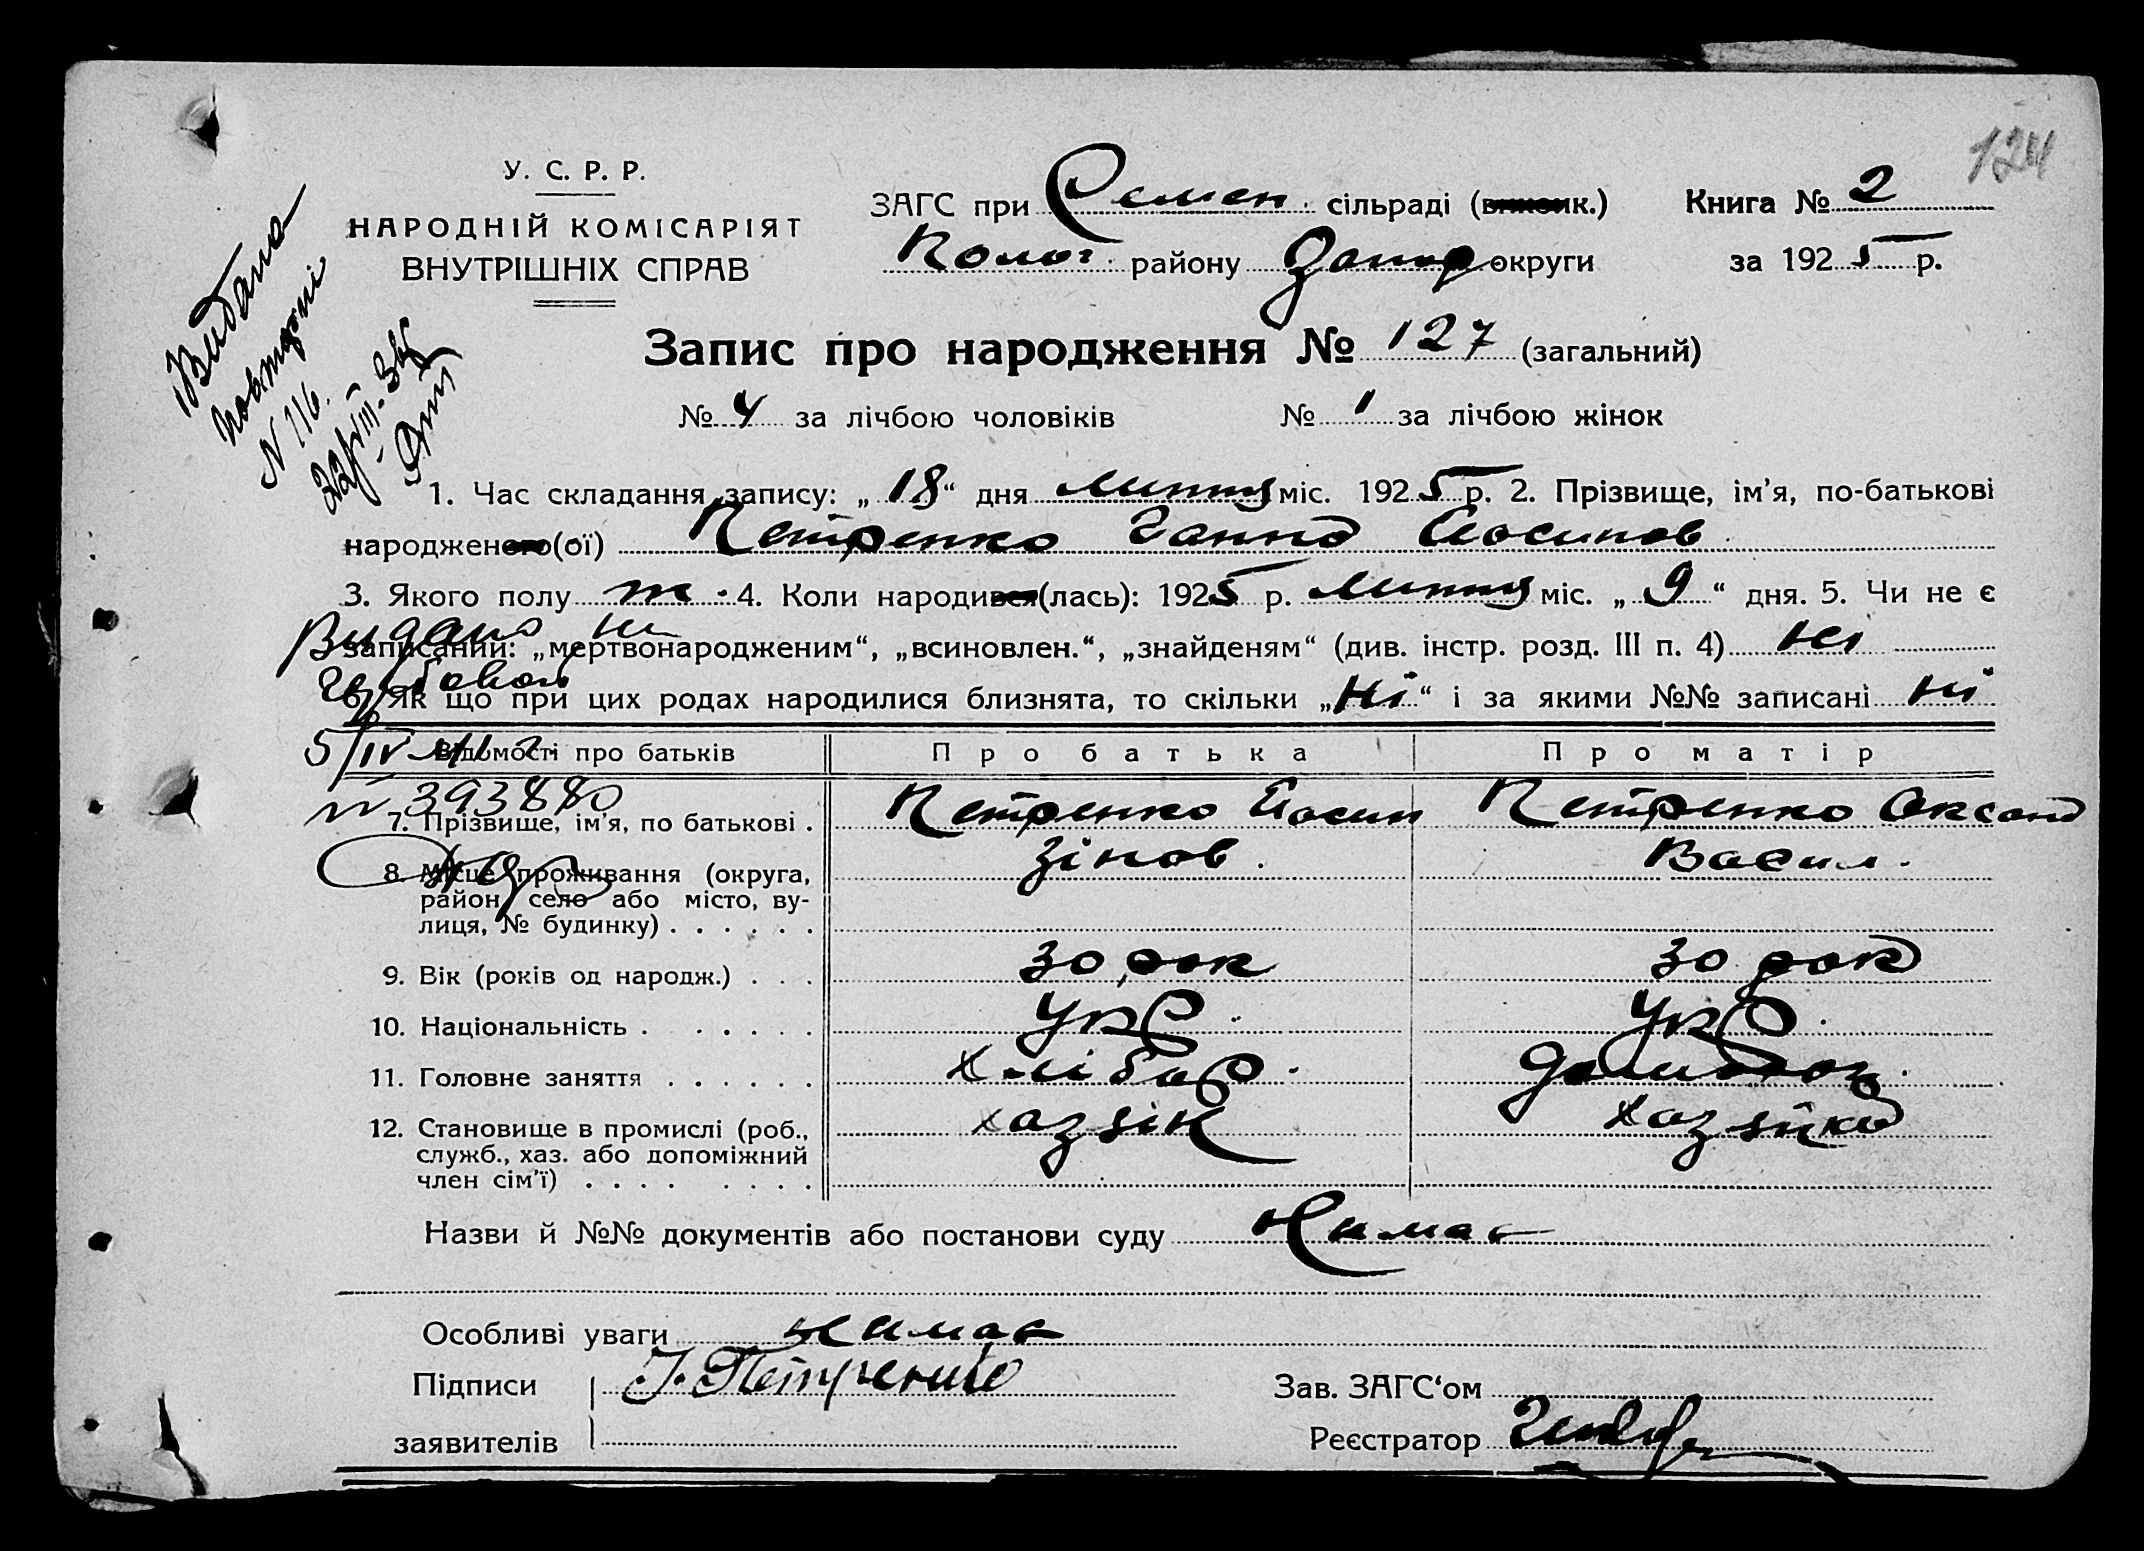 124
У. С. Р. Р.
НАРОДНІЙ КОМІСАРІЯТ
ВНУТРІШНІХ СПРАВ
ЗАГС при Семен. сільраді (виконк.) Книга № 2
Полог. району Запор округи за 1925 р.
Видано
повторні
N 116.
Запис про народження № 127 (загальний)
№ 4 за лічбою чоловіків № 1 за лічбою жінок
1. Час складання запису: „18“ дня липня міс. 1925 р. 2. Прізвище, ім’я, по-батькові
народженого(ої) Петренко Ганна Йосипов
3. Якого полу ж. 4. Коли народився(лась): 1925 р. липня міс. „9“ дня. 5. Чи не є
Видано
записаний: „мертвонародженим“, „всиновлен.“, „знайденям“ (див. інстр. розд. III п. 4) ні
6. Як що при цих родах народилися близнята, то скільки „Ні“ і за якими №№ записані ні
5/IV
Відомості про батьків Про батька Про матір
№ 393880
7. Прізвище, ім’я, по батькові . Петренко Йосип Петренко Оксана
Зінов. Васил.
8. Місце проживання (округа,
район, село або місто, ву-
лиця, № будинку) . . . . . .
9. Вік (років од народж.) . . . 30 рок 30 рок
10. Національність . . . . . . Укр. Укр.
11. Головне заняття . . . . . . Хлібор. домогосп.
12. Становище в промислі (роб., хазяїн хазяйка
служб., хаз. або допоміжний
член сім’ї) . . . . . . . .
Назви й №№ документів або постанови суду Нимає
Особливі уваги нимає
Підписи І. Петренко Зав. ЗАГС‘ом
заявителів Реєстратор